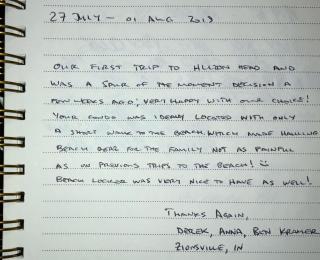 27 JULY - 01 AUG 2013
OUR FIRST TRIP TO HILTON HEAD AND
WAS A SPUR OF THE MOMENT DECISION A
FEW WEEKS AGO; VERY HAPPY WITH OUR CHOICE!
YOUR CONDO WAS IDEALLY LOCATED WITH ONLY
A SHORT WALK TO THE BEACH, WHICH MADE HAULING
BEACH GEAR FOR THE FAMILY NOT AS PAINFUL
AS ON PREVIOUS TRIPS TO THE BEACH! :)
BEACH LOCKER WAS VERY NICE TO HAVE AS WELL!
THANKS AGAIN,
DEREK, ANNA, BEN KRAMER
ZIONSVILLE, IN